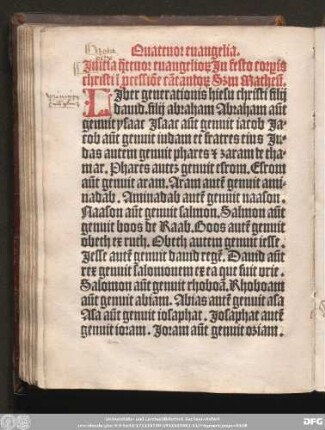 Quatuor euangelia.
Inicia q̄tuor euangelioꝝ In festo corpis
christi ī ꝓcessiōe cātandoꝝ Sᵽm Matheū.
LIber generationis hiesu christi filij
dauid. filij abraham Abraham aūt
genuit ysaac Isaac aūt genuit iacob Ja-
cob aūt genuit iudam et fratres eius Ju-
das autem genuit phares & zaram de tha-
mar. Phares autez genuit esrom. Esrom
aūt genuit aram. Aram autē genuit ami-
nadab. Aminadab autē genuit naason.
Naason aūt genuit salmon. Salmon aūt
genuit boos de Raab. Boos autē genuit
obeth ex ruth. Obeth autem genuit iesse.
Jesse autē genuit dauid regē. Dauid aūt
rex genuit salomonem ex ea que fuit vrie.
Salomon aūt genuit rhoboā. Rhoboam
aūt genuit abiam. Abias autē genuit asa
Asa aūt genuit iosaphat. Josaphat autē
genuit ioram. Joram aūt genuit oziam.
DFG